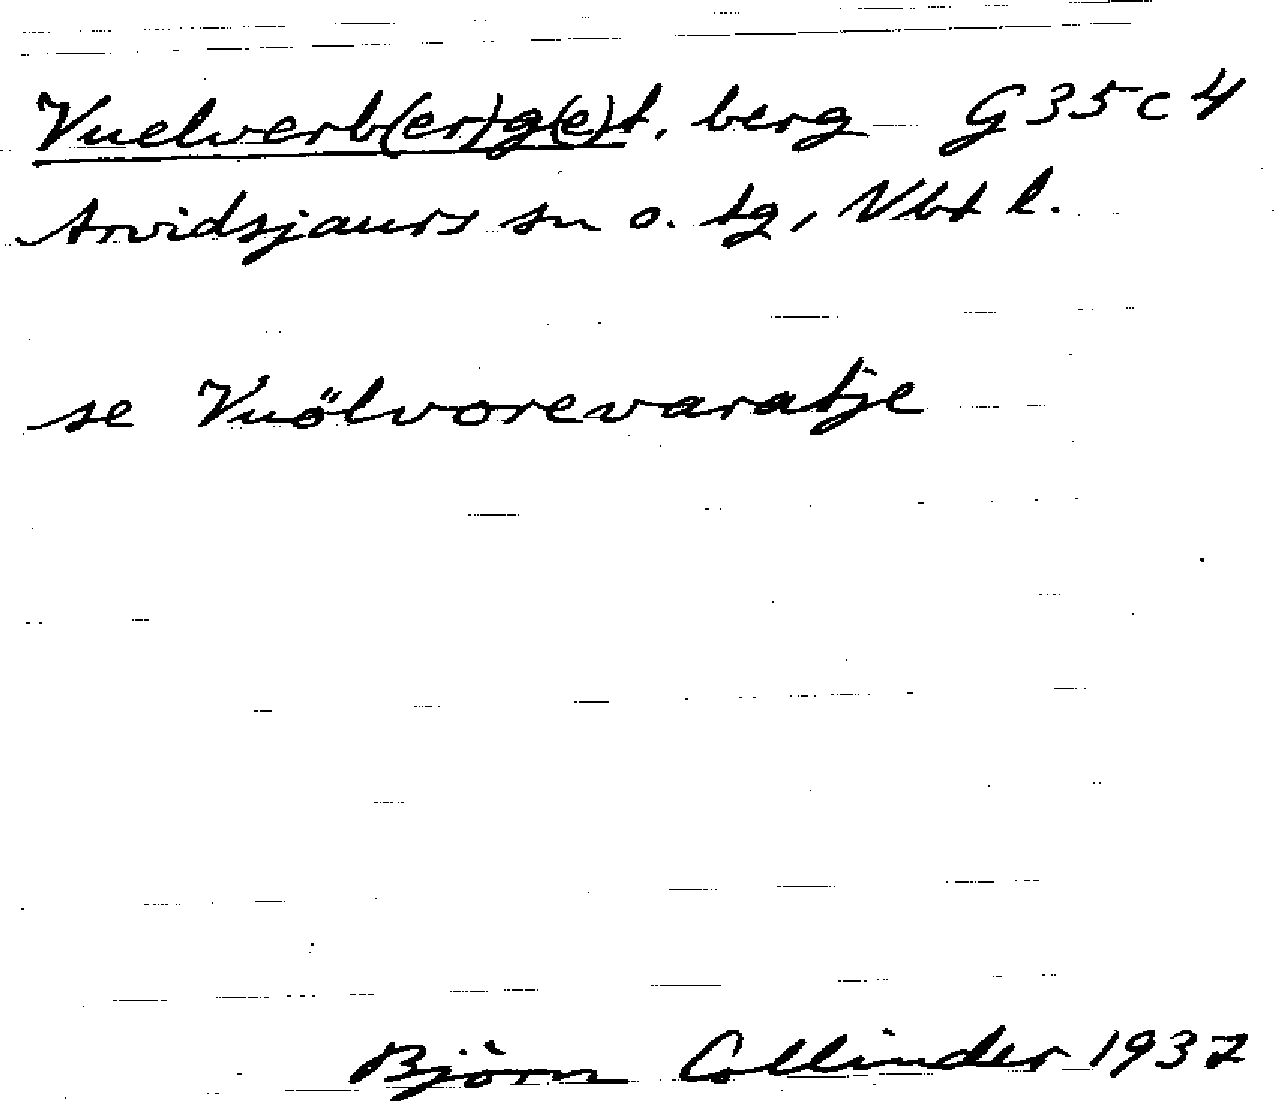 Vuelverb(er)g(e)t, berg G35c4
Arvidsjaurs sn o. tg, Vbt l.
se Vuölvorevaratje
Björn Collinder 1937